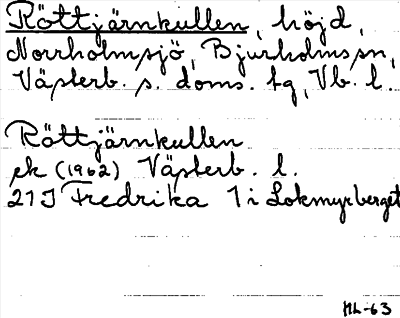 Röttjärnkullen, höjd,
Norrholmsjö, Bjurholms sn,
Västerb. s. doms. tg, Vb. l.
Röttjärnkullen
ek (1962) Västerb. l.
21J Fredrika 1i Lokmyrberget
ML-63